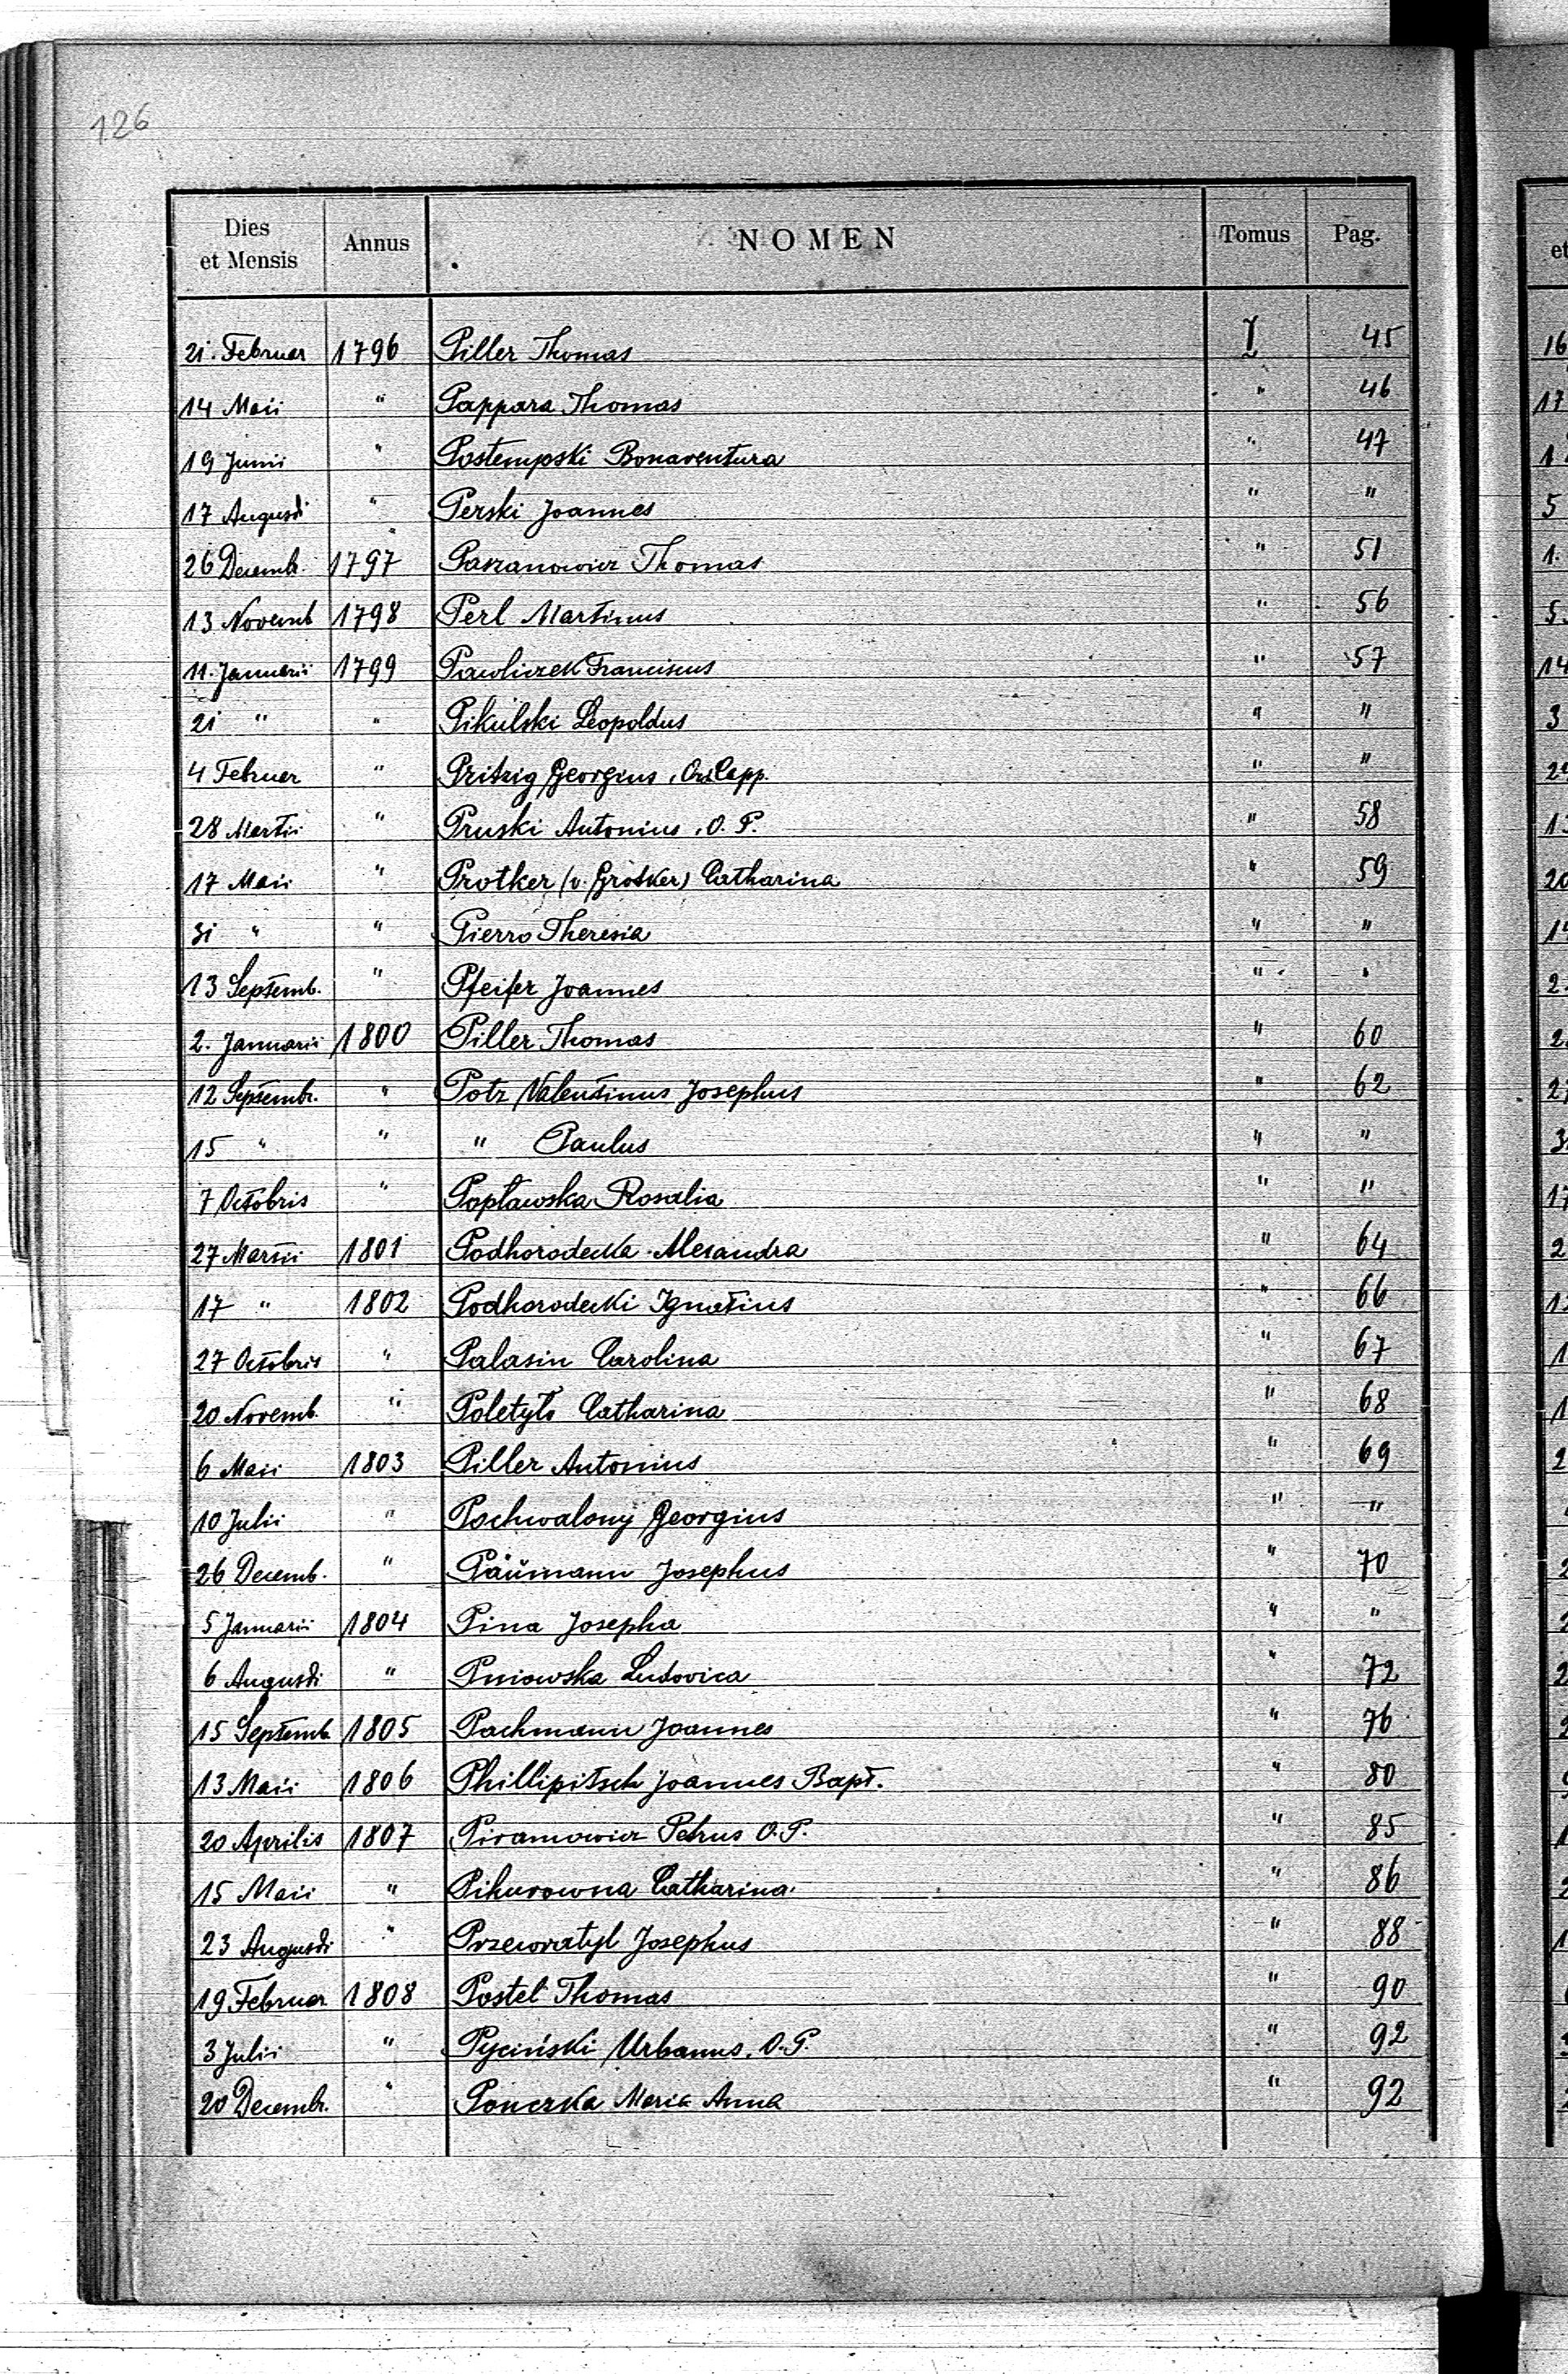 126
Dies et Mensis Annus NOMEN Tomus Pag.
21. Februar 1796 Piller Thomas I 45
14 Maii " Pappara Thomas " 46
19 Junii " Postempski Bonaventura " 47
17 Augusti " Perski Joannes " "
26 Decemb. 1797 Paszanowicz Thomas " 51
13 Novemb 1798 Perl Martinus " 56
11. Januarii 1799 Pawliczek Franciscus " 57
21 " " Pikulski Leopoldus " "
4 Februar " Pritzig Georgius, Capp. " "
28 Martii " Pruski Antonius, O. P. " 58
17 Maii " Protker (v. Grotker) Catharina " 59
31 " " Pierro Theresia " "
13 Septemb. " Pfeifer Joannes " "
2. Januarii 1800 Piller Thomas " 60
12 Septembr. " Potz Valentinus Josephus " 62
15 " " " Paulus " "
7 Octobris " Popławska Rosalia " "
27 Martii 1801 Podhorodecka Alexandra " 64
17 " 1802 Podhorodecki Ignatius " 66
27 Octobris " Palasin Carolina " 67
20 Novemb. " Poletyło Catharina " 68
6 Maii 1803 Piller Antonius " 69
10 Julii " Pochwalony Georgius " "
26 Decemb. " Päumann Josephus " 70
5 Januarii 1804 Pina Josepha " "
6 Augusti " Pniowska Ludovica " 72
15 Septemb. 1805 Pachmann Joannes " 76
13 Maii 1806 Phillipitsch Joannes Bapt. " 80
20 Aprilis 1807 Piramowicz Petrus O. P. " 85
15 Maii " Pikurowna Catharina " 86
23 Augusti " Przewratyl Josephus " 88
19 Februar 1808 Postel Thomas " 90
3 Julii " Pyciński Urbanus, O. P. " 92
20 Decembr. " Ponczka Maria Anna " 92